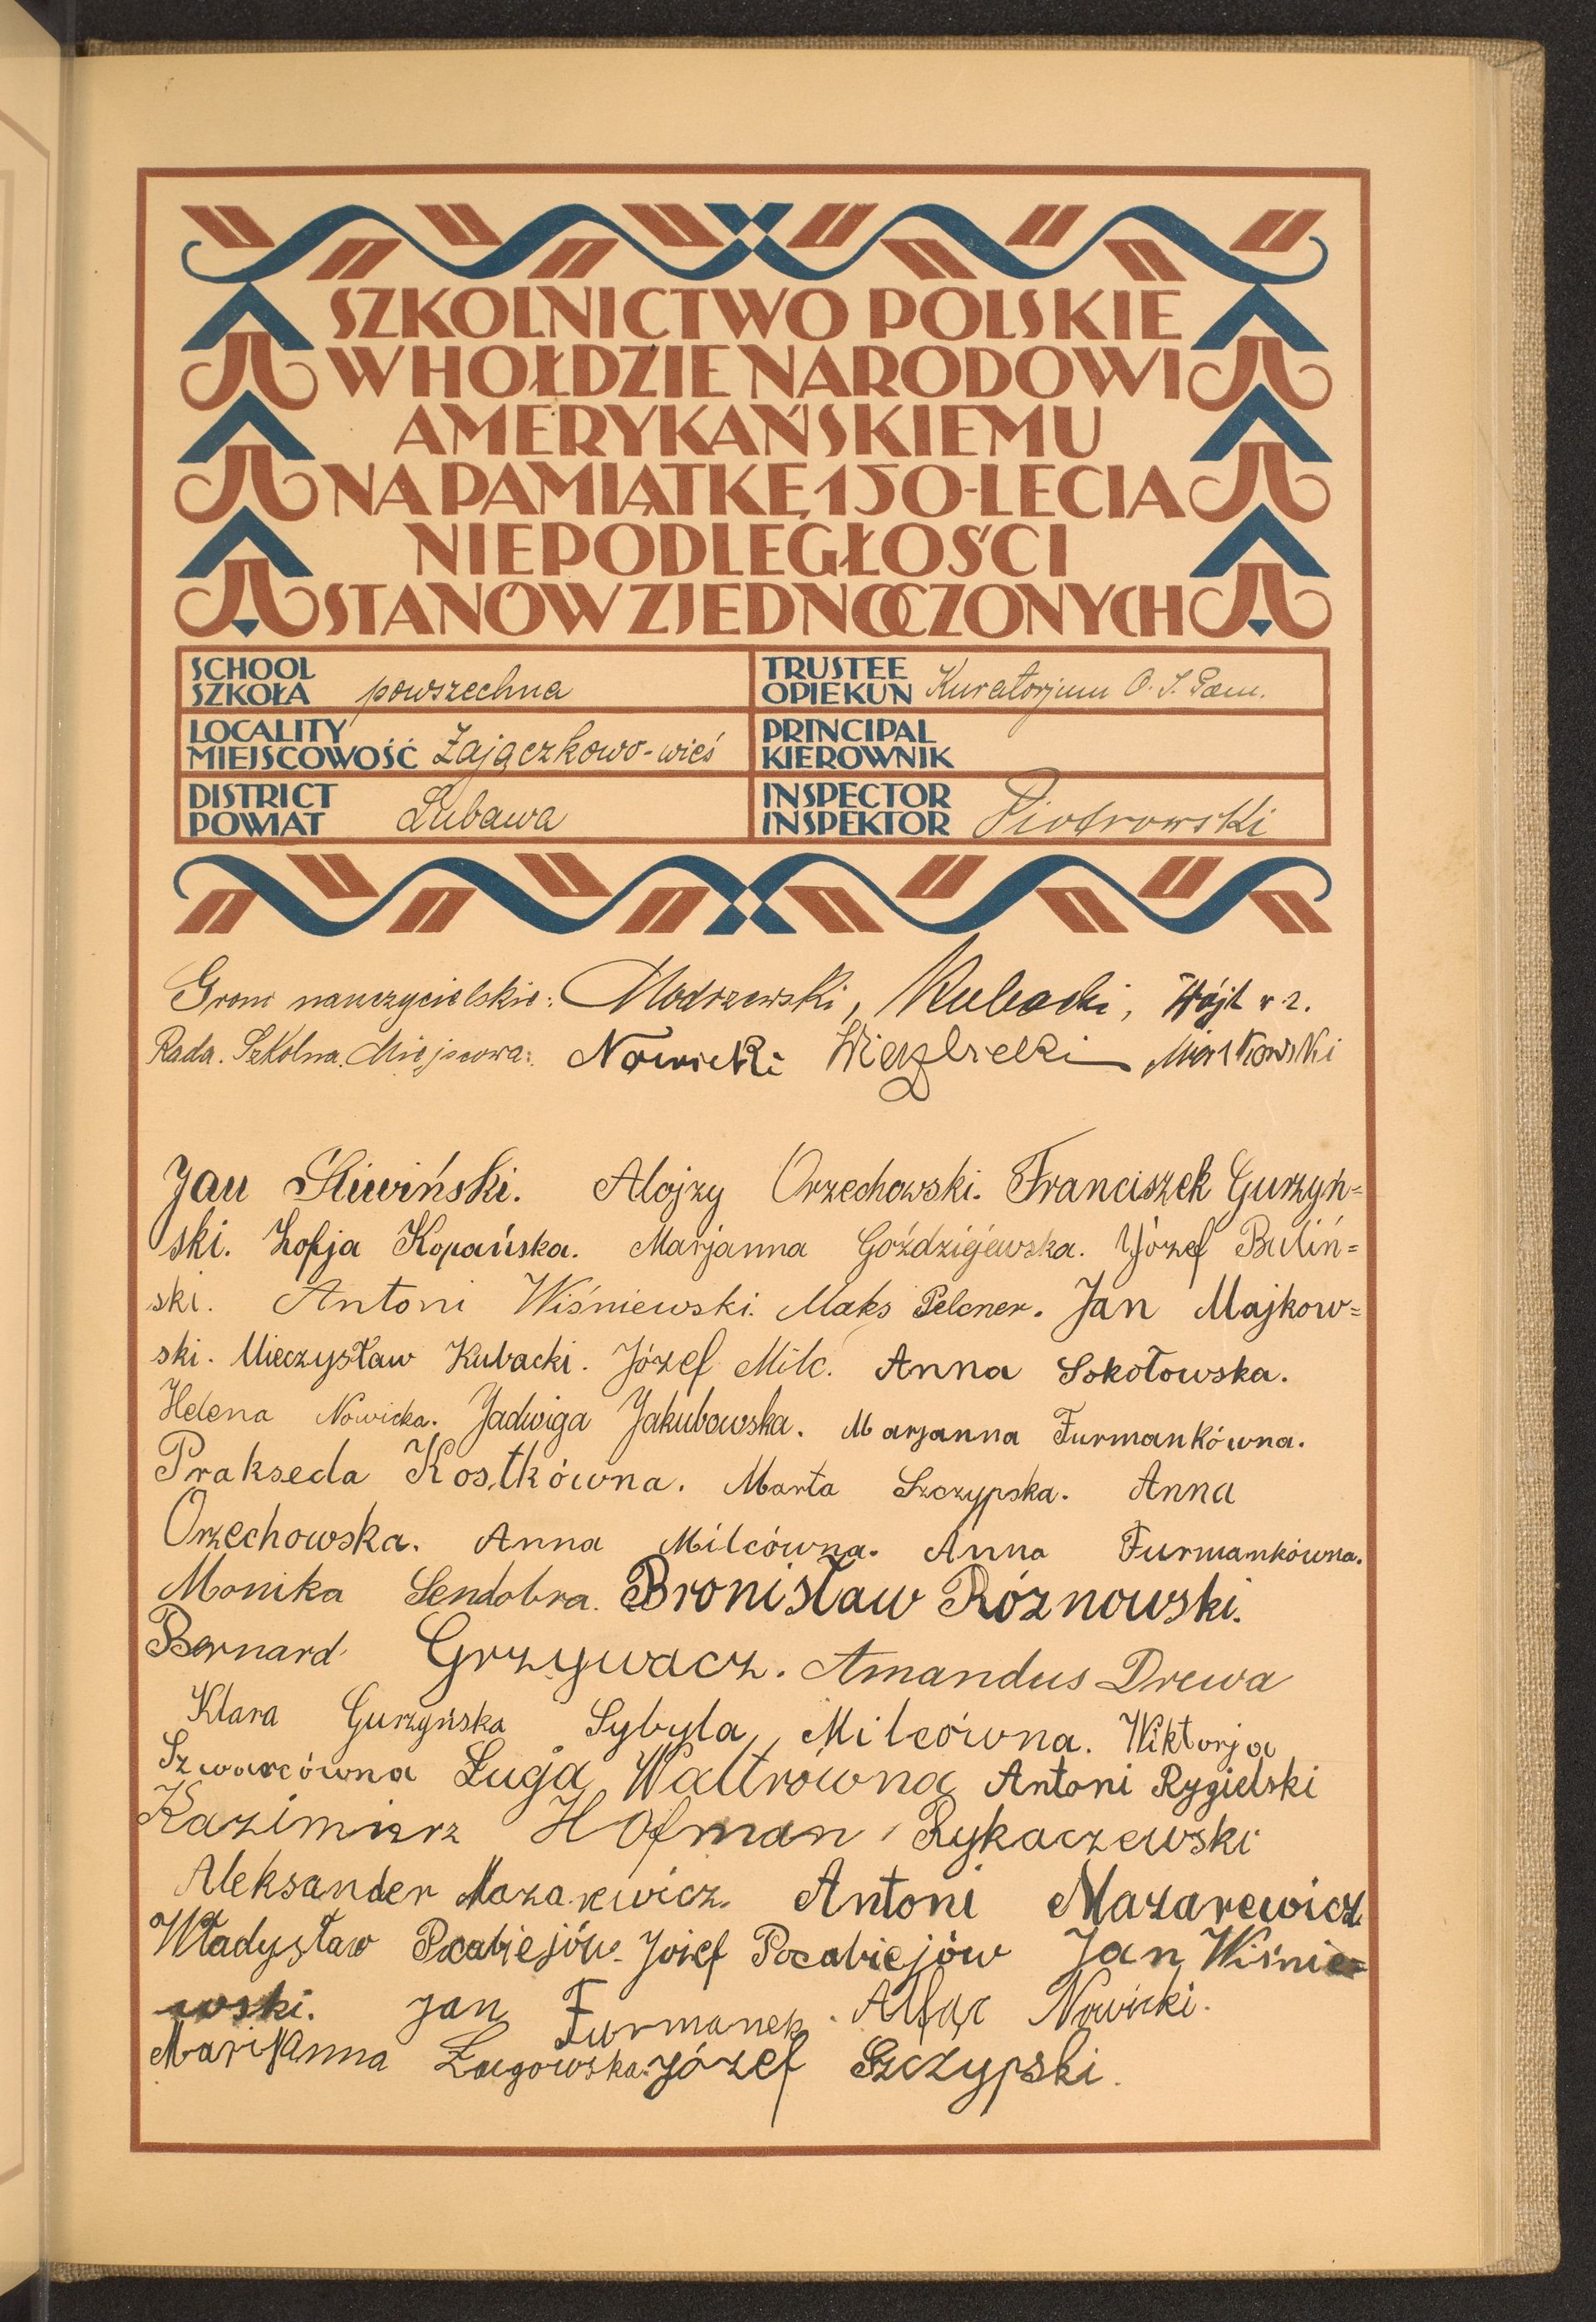 SZKOLNICTWO POLSKIE
W HOŁDZIE NARODOWI
AMERYKAŃSKIEMU
NA PAMIĄTKĘ 150-LECIA
NIEPODLEGŁOŚCI
STANÓW ZJEDNOCZONYCH
SCHOOL
SZKOŁA powszechna
TRUSTEE
OPIEKUN Kuratorjum O. S. Pom.
LOCALITY
MIEJSCOWOŚĆ Zajączkowo-wieś
PRINCIPAL
KIEROWNIK
DISTRICT
POWIAT Lubawa
INSPECTOR
INSPEKTOR Piotrowski
Grono nauczycielskie: Modrzewski, Kubacki, Wójt
Rada Szkolna Miejscowa: Nowicki
Jan Śliwiński. Alojzy Orzechowski. Franciszek Gurzyń=
ski. Zofja Kopańska. Marjanna Góździejewska. Józef Buliń=
ski. Antoni Wiśniewski. Maks Pelcner. Jan Majkow=
ski. Mieczysław Kubacki. Józef Milc. Anna Sokołowska.
Helena Nowicka. Jadwiga Jakubowska. Marjanna Furmankówna.
Prakseda Kostkówna. Marta Szczypska. Anna
Orzechowska. Anna Milcówna. Anna Furmankówna.
Monika Sendobra. Bronisław Różnowski.
Bernard Grzywacz. Amandus Drewa
Klara Gurzyńska Sybyla Milcówna. Wiktorja
Szwarcówna Łucja Waltrówna Antoni Rygielski
Kazimierz Hofman Rykaczewski
Aleksander Mazarewicz. Antoni Mazarewicz
Władysław Pocabiejów. Józef Pocabiejów Jan Wiśnie=
wski. Jan Furmanek. Nowicki.
Marijanna Żugowska. Józef Szczypski.